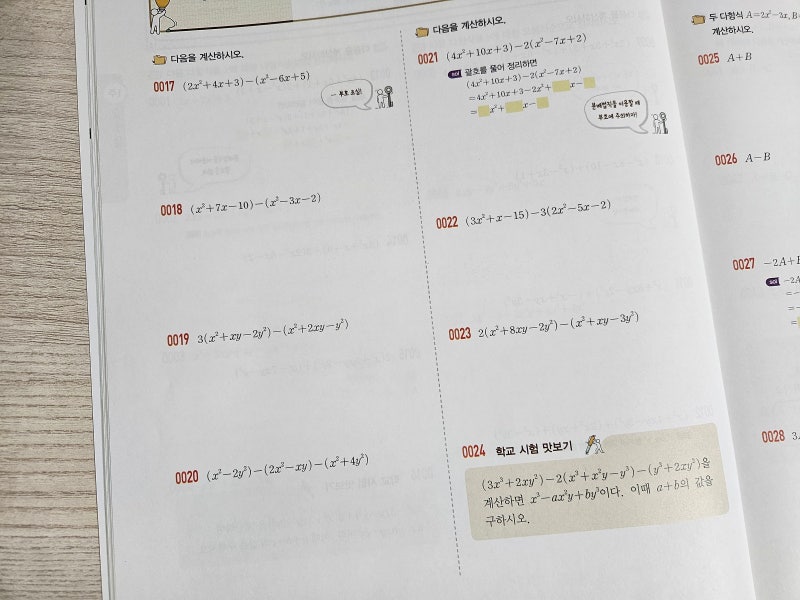 다음을 계산하시오.
0017 (2x²+4x+3)-(x²-6x+5)
— 부호 조심!
0018 (x²+7x-10)-(x²-3x-2)
0019 3(x²+xy-2y²)-(x²+2xy-y²)
0020 (x²-2y²)-(2x²-xy)-(x²+4y²)
다음을 계산하시오.
0021 (4x²+10x+3)-2(x²-7x+2)
sol 괄호를 풀어 정리하면
(4x²+10x+3)-2(x²-7x+2)
=4x²+10x+3-2x²+ x-
= x²+ x-
분배법칙을 이용할 때
부호에 주의하자!
0022 (3x²+x-15)-3(2x²-5x-2)
0023 2(x²+8xy-2y²)-(x²+xy-3y²)
0024 학교 시험 맛보기
(3x³+2xy²)-2(x³+x²y-y³)-(y³+2xy²)을
계산하면 x³-ax²y+by³이다. 이때 a+b의 값을
구하시오.
두 다항식 A=2x²-3x, B
계산하시오.
0025 A+B
0026 A-B
0027 -2A+B
sol -2A
=-
=-
=
0028 3